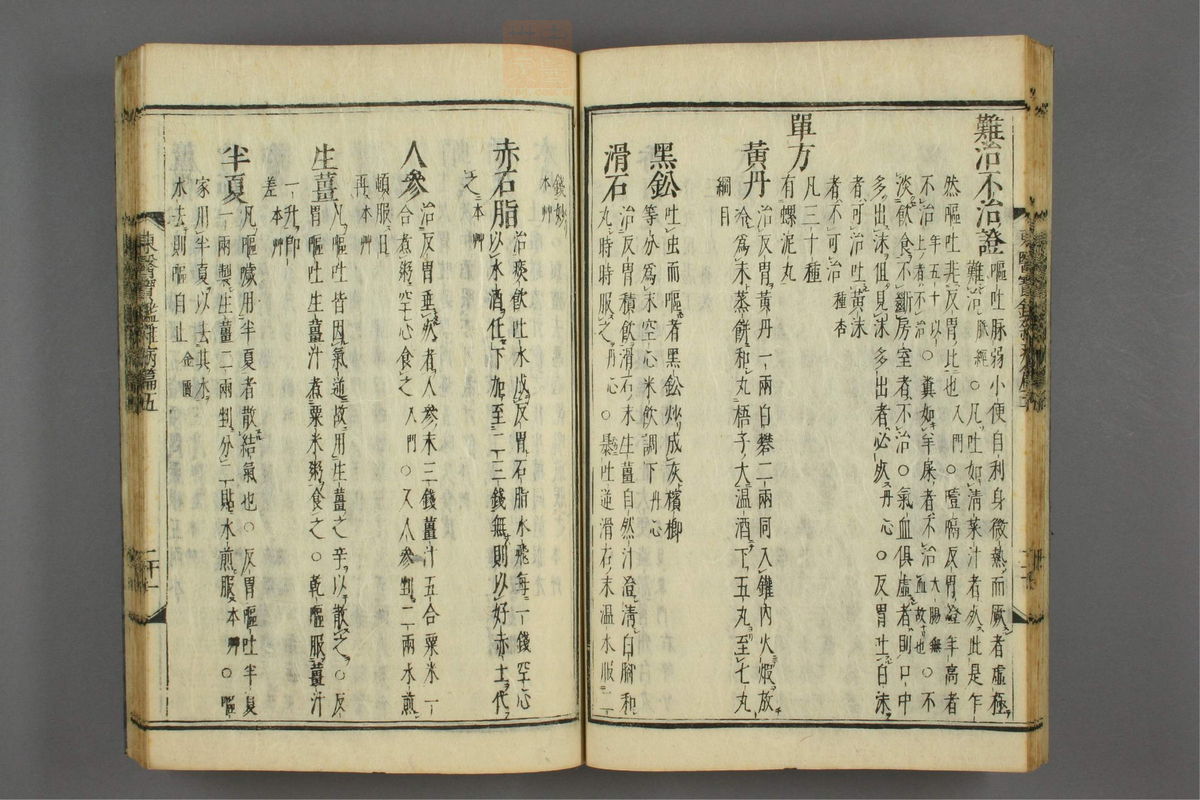 難治不治證
嘔吐脉弱小便自利身微熱而厥者虛極
難治脉經○凡吐如清菜汁者死此是乍
然嘔吐非反胃比也入門○噎膈反胃證年高者
不治年五十以上者不治○糞如羊屎者不治大腸無血故也○不
淡飲食不斷房室者不治○氣血俱虛者則口中
多出沫但見沫多出者必死丹心○反胃吐白沫
者可治吐黃沫
者不可治種杏
單方
凡三十種
有螺泥丸
黃丹
治反胃黃丹一兩白礬二兩同入罐內火煅放
冷爲末蒸餅和丸梧子大温酒下五丸至七丸
綱目
黑鈆
吐虫而嘔者黑鈆炒成灰檳榔
等分爲末空心米飲調下丹心
滑石
治反胃積飲滑石末生薑自然汁澄清白脚和
丸時時服之丹心○暴吐逆滑石末温水服二
錢妙
本艸
赤石脂
治痰飲吐水成反胃石脂水飛每一錢空心
以水酒化下加至二三錢無則以好赤土代
之本艸
人參
治反胃垂死者人參末三錢薑汁五合粟米一
合煮粥空心食之入門○又人參剉二兩水煎
頓服日
再本艸
生薑
凡嘔吐皆因氣逆故用生薑之辛以散之○反
胃嘔吐生薑汁煮粟米粥食之○乾嘔服薑汁
一升卽
差本艸
半夏
凡嘔噦用半夏者散結氣也○反胃嘔吐半夏
一兩製生薑二兩剉分二貼水煎服本艸○嘔
家用半夏以去其水
水去則嘔自止金匱
東醫寶鑑雜病篇五
二十一